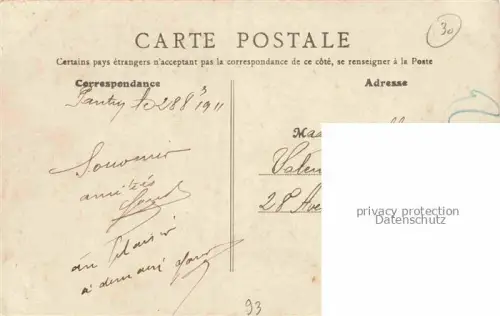 30
CARTE POSTALE
Certains pays étrangers n'acceptant pas la correspondance de ce côté, se renseigner à la Poste
Correspondance
Adresse
Pantin le 28 8 1911
Souvenir
amitiés
au Plaisir
à demain
Valen
28 Ave
privacy protection
Datenschutz
93